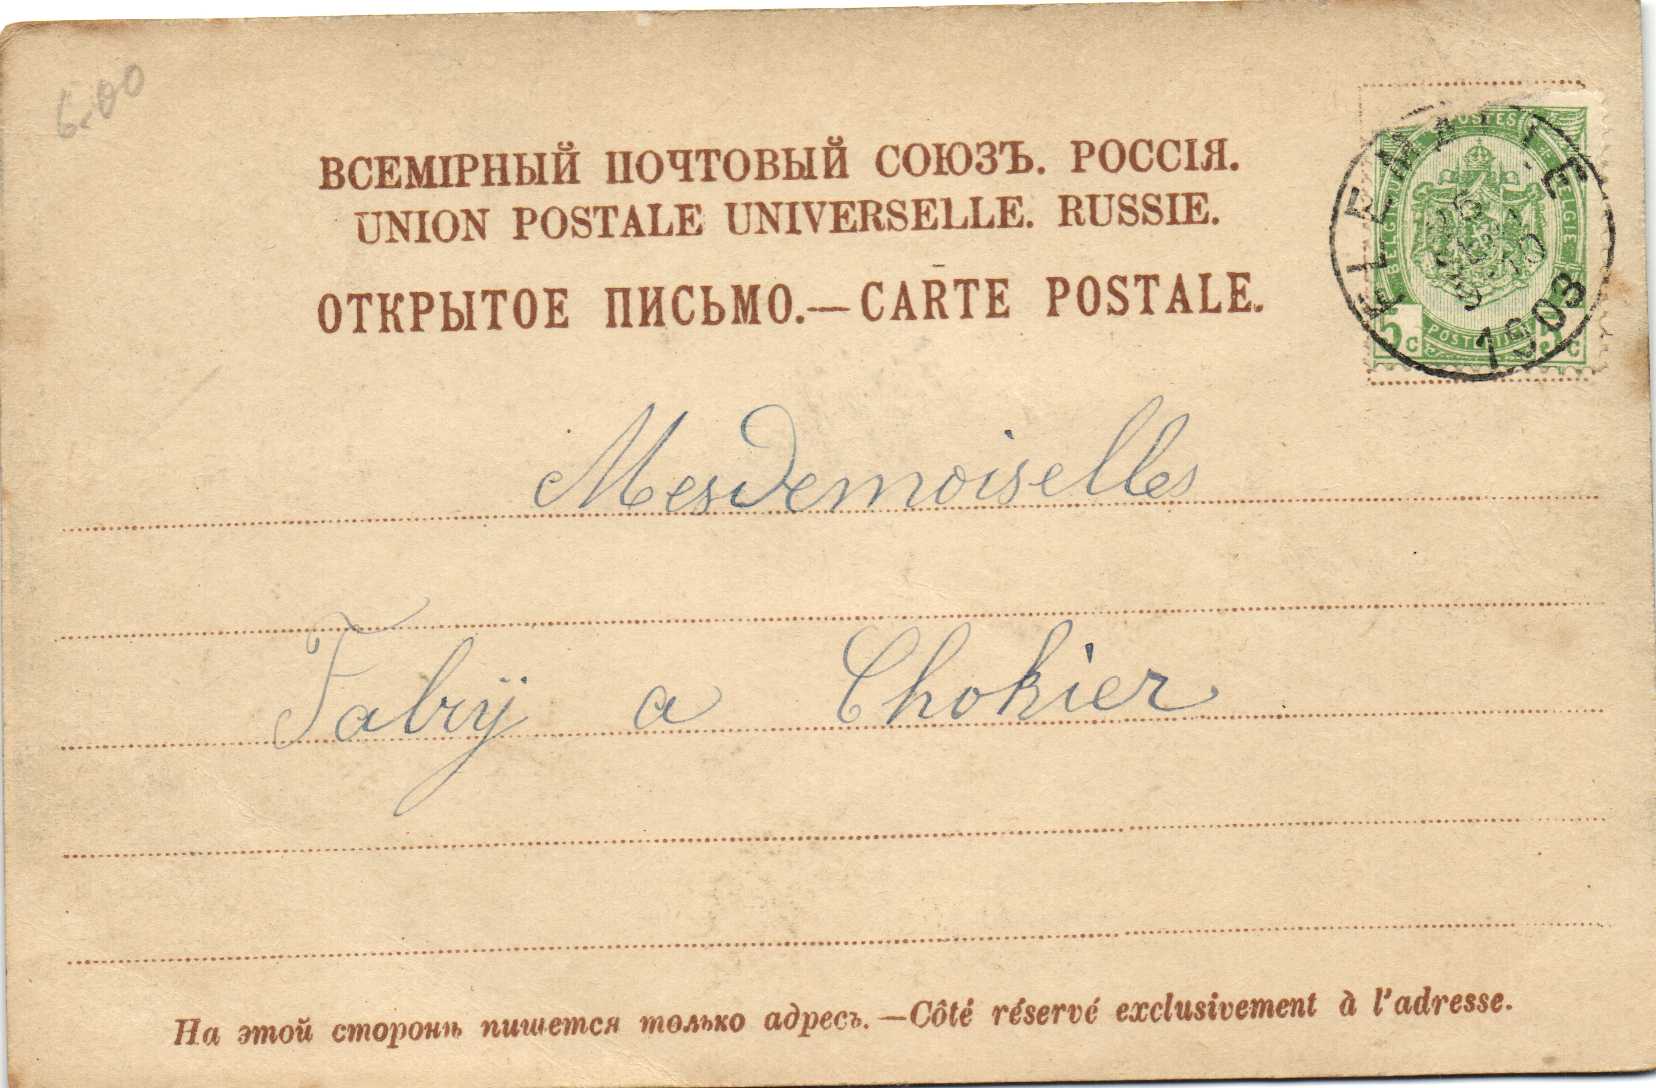 6.00
ВСЕМІРНЫЙ ПОЧТОВЫЙ СОЮЗЪ. РОССІЯ.
UNION POSTALE UNIVERSELLE. RUSSIE.
ОТКРЫТОЕ ПИСЬМО.—CARTE POSTALE.
POSTES
BELGIE
5c 5c
FLEMALLE
1903
Mesdemoiselles
Fabrÿ a Chokier
На этой сторонѣ пишется только адресъ.—Côté réservé exclusivement à l'adresse.